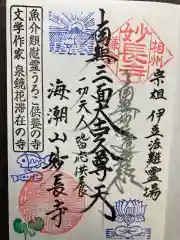 相州
妙長寺
宗祖 伊豆法難霊場
南無三面大黒尊天
一切天人皆應供養
海潮山妙長寺
魚介類慰霊うろこ供養の寺
文学作家 泉鏡花滞在の寺